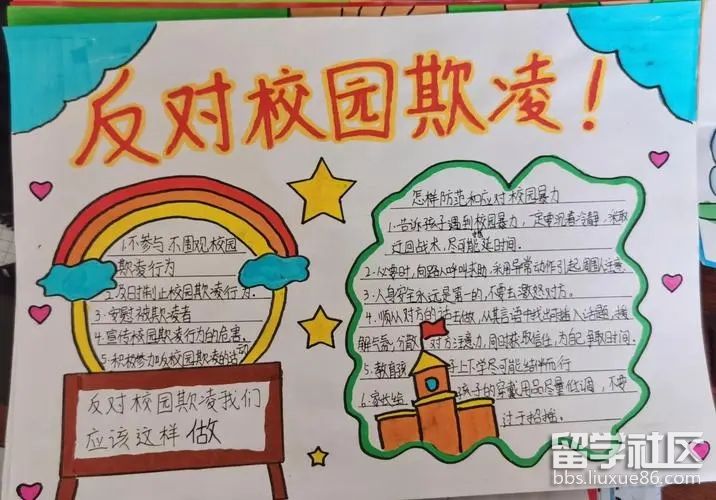 反对校园欺凌!
1.不参与 不围观校园
欺凌行为
2.及时制止校园欺凌行为.
3.安慰被欺凌者
4.宣传校园欺凌行为的危害.
5.积极参加反校园欺凌的活动
反对校园欺凌我们
应该这样做
怎样防范和应对校园暴力
1.告诉孩子遇到校园暴力,一定要沉着冷静,采取
迂回战术,尽可能拖延时间.
2.必要时,向路人呼叫求助,采用异常动作引起周围人注意.
3.人身安全永远是第一的,不要去激怒对方.
4.顺从对方的话去做,从其言语中找出可插入话题,缓
解气氛,分散对方注意力,同时获取信任,为自己争取时间.
5.教育孩子上下学尽可能结伴而行
6.家长给孩子的穿戴用品尽量低调,不要
过于招摇.
留学社区
bbs.liuxue86.com